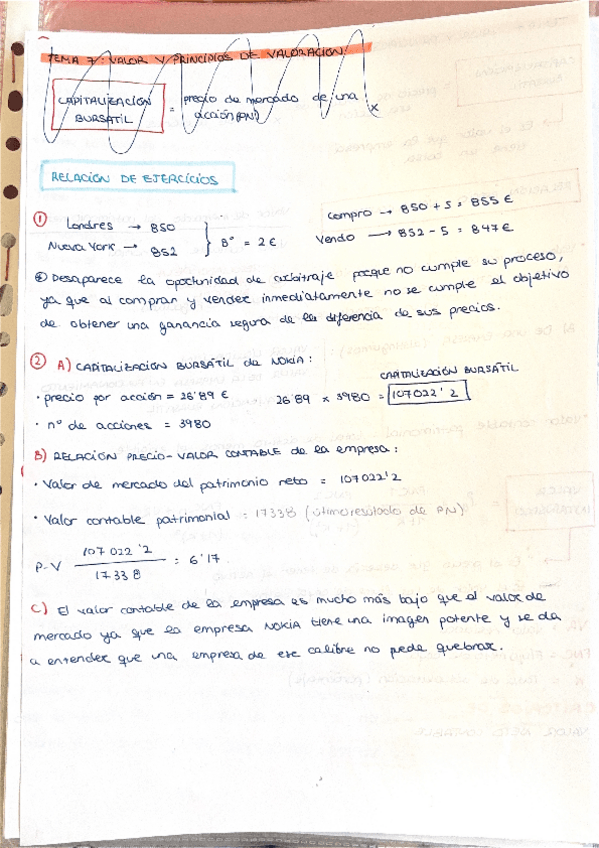 TEMA 7: VALOR Y PRINCIPIOS DE VALORACIÓN:
CAPITALIZACIÓN BURSÁTIL = precio de mercado de una acción (PN) x
RELACIÓN DE EJERCICIOS
① Londres → 850
Nueva York → 852 } Bº = 2 €
Compro → 850 + 5 = 855 €
Vendo → 852 - 5 = 847 €
Desaparece la oportunidad de arbitraje porque no cumple su proceso,
ya que al comprar y vender inmediatamente no se cumple el objetivo
de obtener una ganancia segura de la diferencia de sus precios.
② A) CAPITALIZACIÓN BURSÁTIL de NOKIA:
· precio por acción = 26'89 €
· nº de acciones = 3980
CAPITALIZACIÓN BURSÁTIL
26'89 x 3980 = 107022'2
B) RELACIÓN PRECIO-VALOR CONTABLE de la empresa:
· Valor de mercado del patrimonio neto = 107022'2
· Valor contable patrimonial = 17338 (último resultado de PN)
P-V 107 022'2 / 17338 = 6'17
C) El valor contable de la empresa es mucho más bajo que el valor de
mercado ya que la empresa NOKIA tiene una imagen potente y se da
a entender que una empresa de ese calibre no pede quebrar.